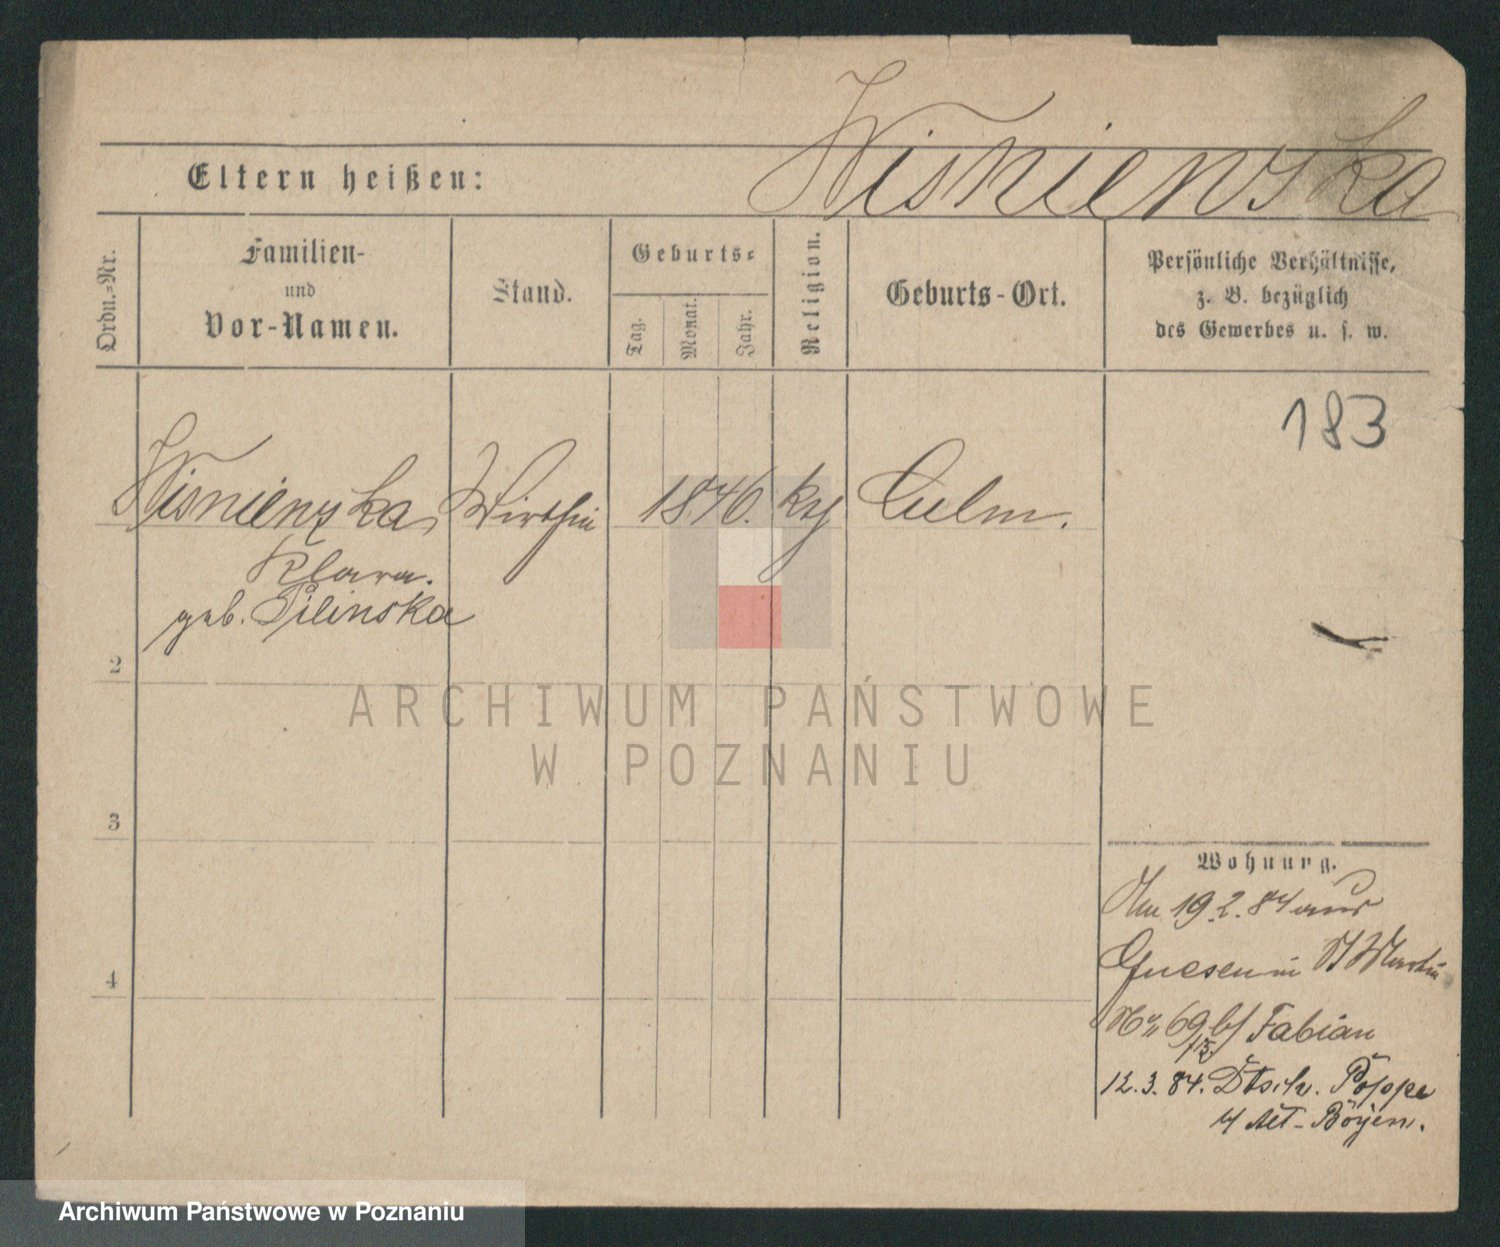 Wisniewska
Eltern heißen:
Ordn.-Nr.
Familien-
und
Vor-Namen.
Stand.
Geburts-
Tag.
Monat.
Jahr.
Religion.
Geburts-Ort.
Persönliche Verhältnisse,
z. B. bezüglich
des Gewerbes u. s. w.
183
Wisniewska, Wirthin 1846. Culm.
Klara.
geb. Pilinska
2
3
4
Wohnung.
Am 19.2.84 aus
Gnesen in St Martin
No 69 b/ Fabian
12.3.84. Dtsch. Poppe
ARCHIWUM PAŃSTWOWE
W POZNANIU
Archiwum Państwowe w Poznaniu